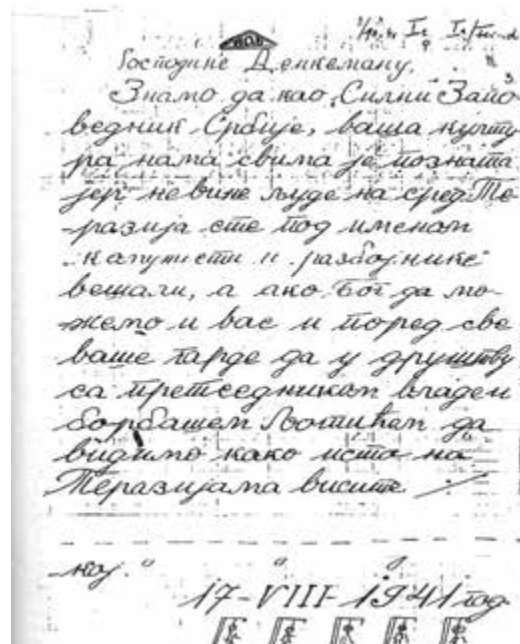 Господине Денкеману,
Знамо да као „Силни Запо
ведник Србије, ваша култу
ра нама свима је позната
јер невине људе на сред Те
разија сте под именом
комунисти и разбојнике
вешали, а ако Бог да мо
жемо и вас и поред све
ваше гарде да у друштву
са претседником владен
борбашем Љотићем да
видимо како исто на
Теразијама висите
17-VIII-1941 год